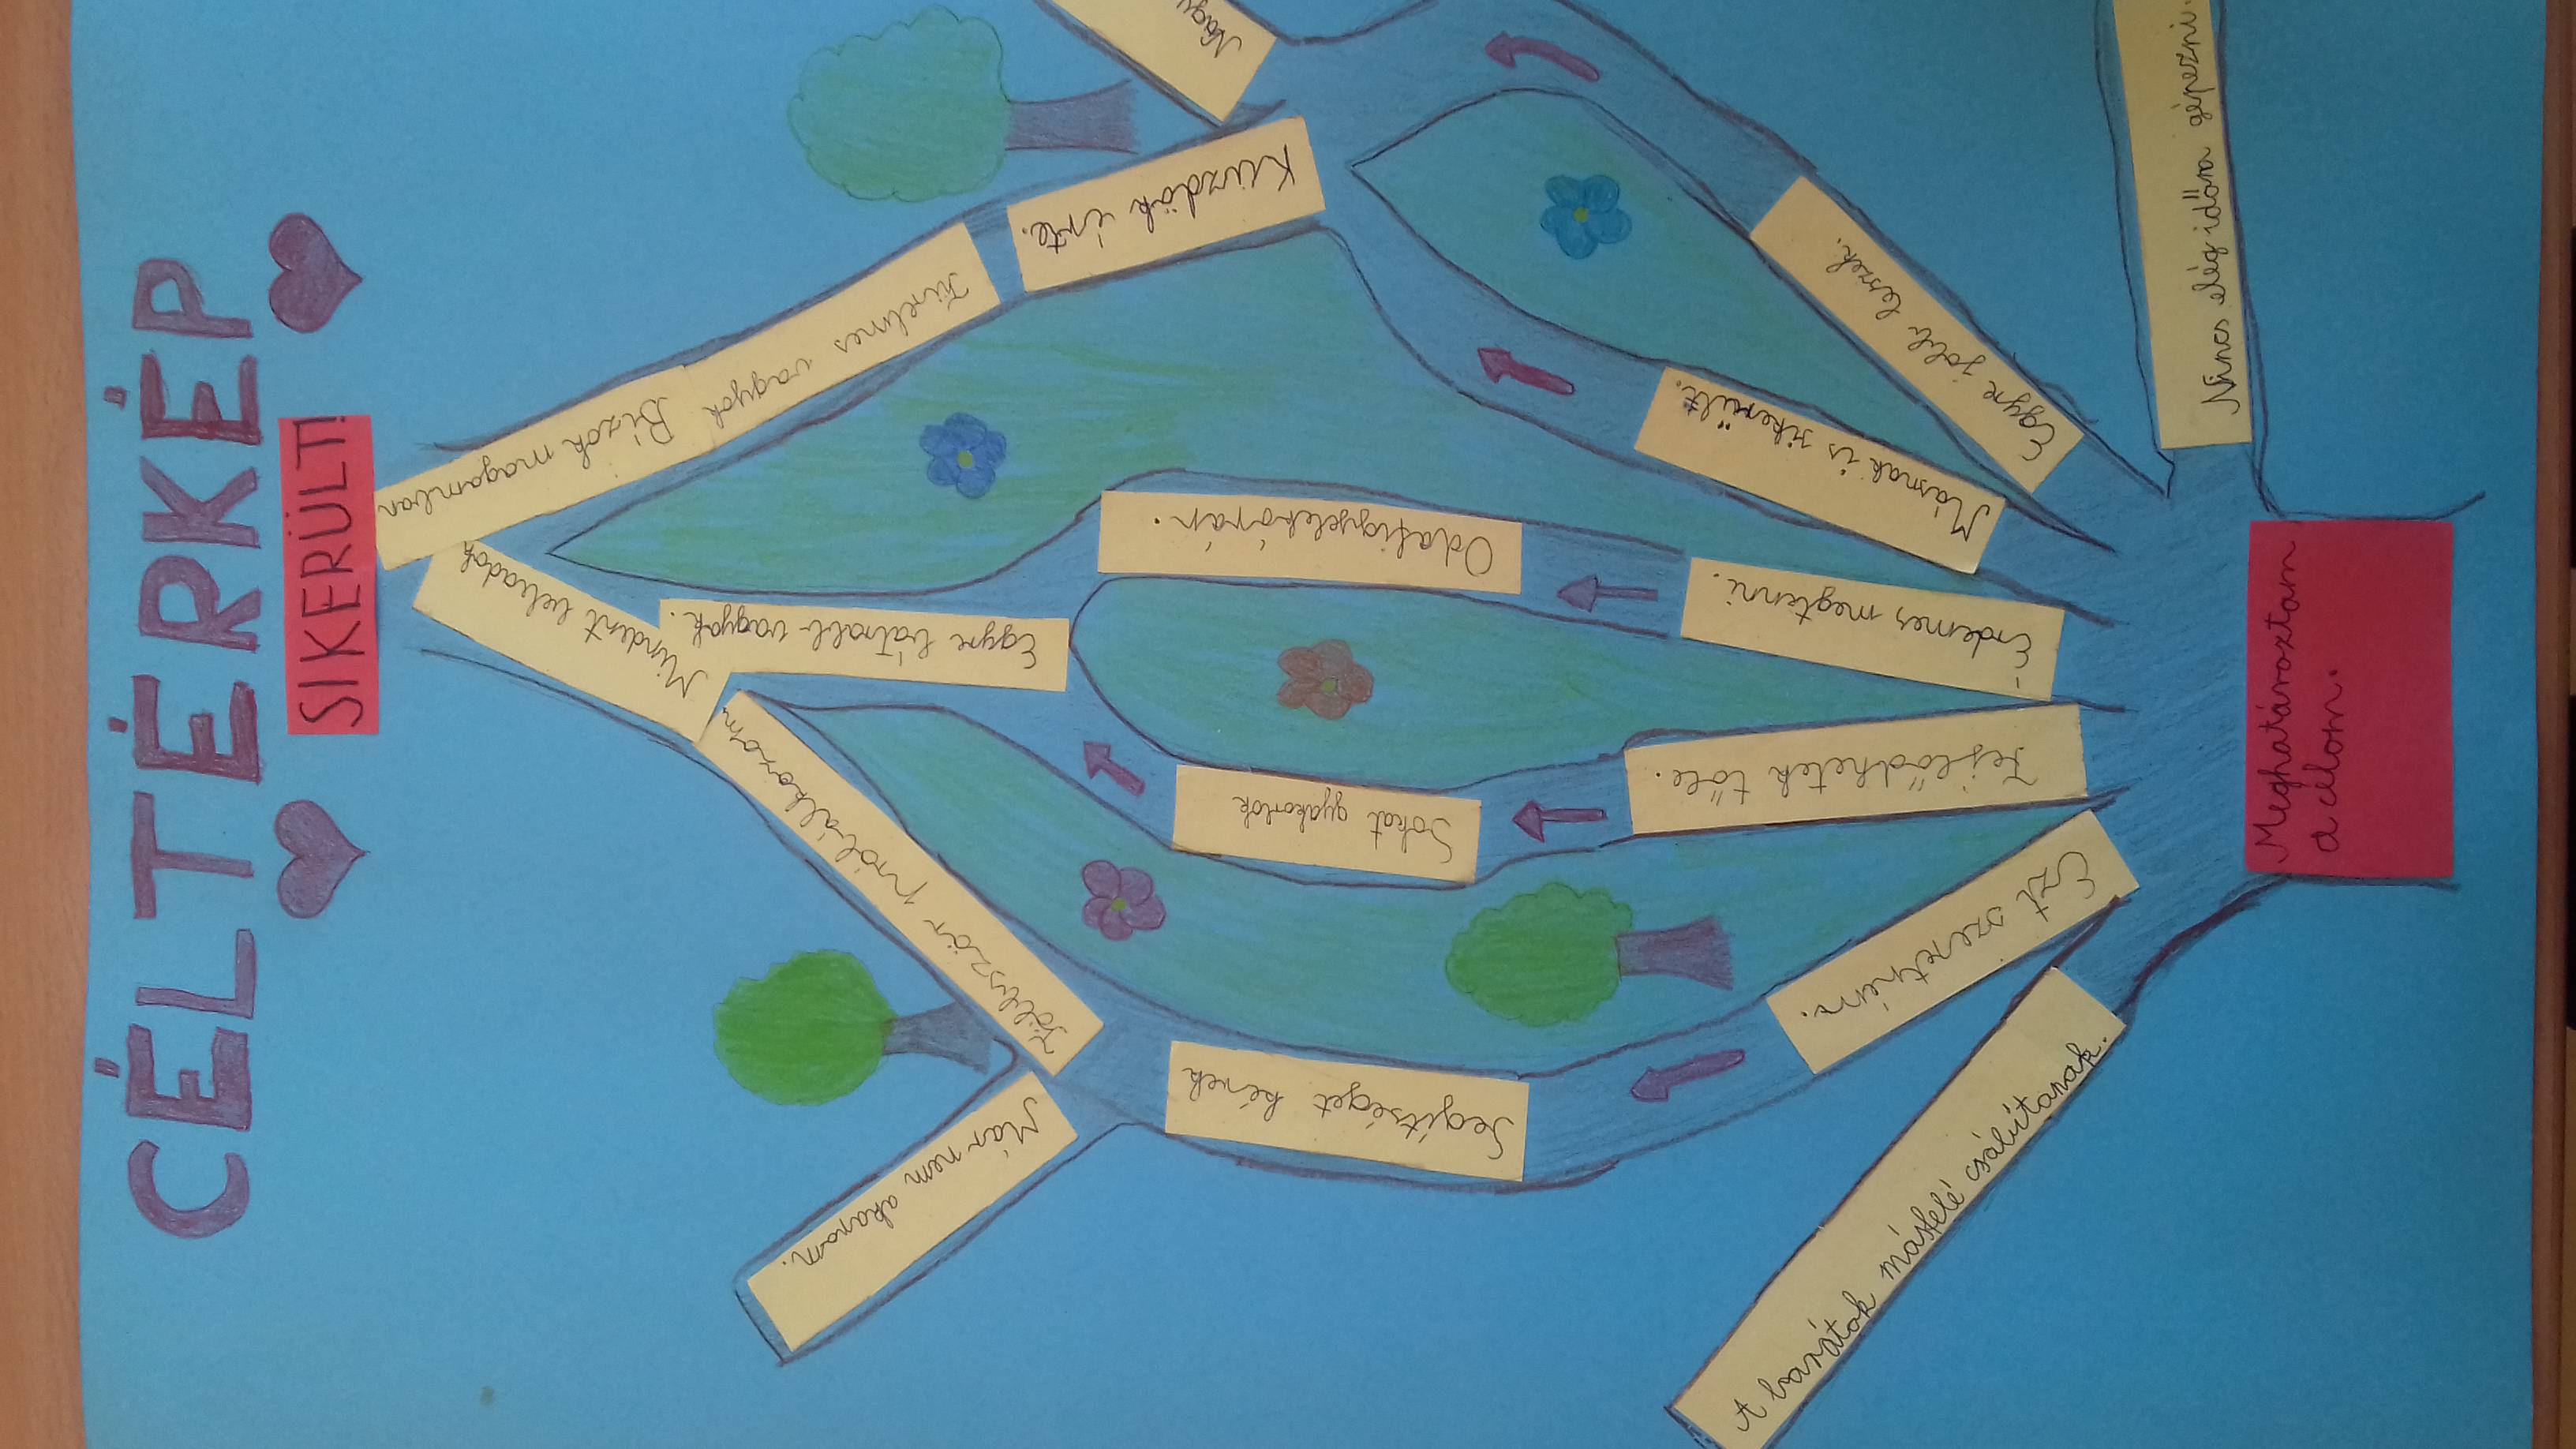 CÉLTÉRKÉP
SIKERÜLT!
Bízok magamban
Mindent beleadok
Türelmes vagyok
Egyre bátrabb vagyok.
Többször próbálkozom
Küzdök érte.
Nagy
Már nem akarom.
Odafigyelek órán.
Sokat gyakorlok
Segítséget kérek
Egyre jobb leszek.
Másnak is sikerült.
Érdemes megtenni.
Fejlődhetek tőle.
Ezt szeretném.
A barátok másfelé csábítanak.
Nincs elég időm gépezni.
Meghatároztam
a célom.